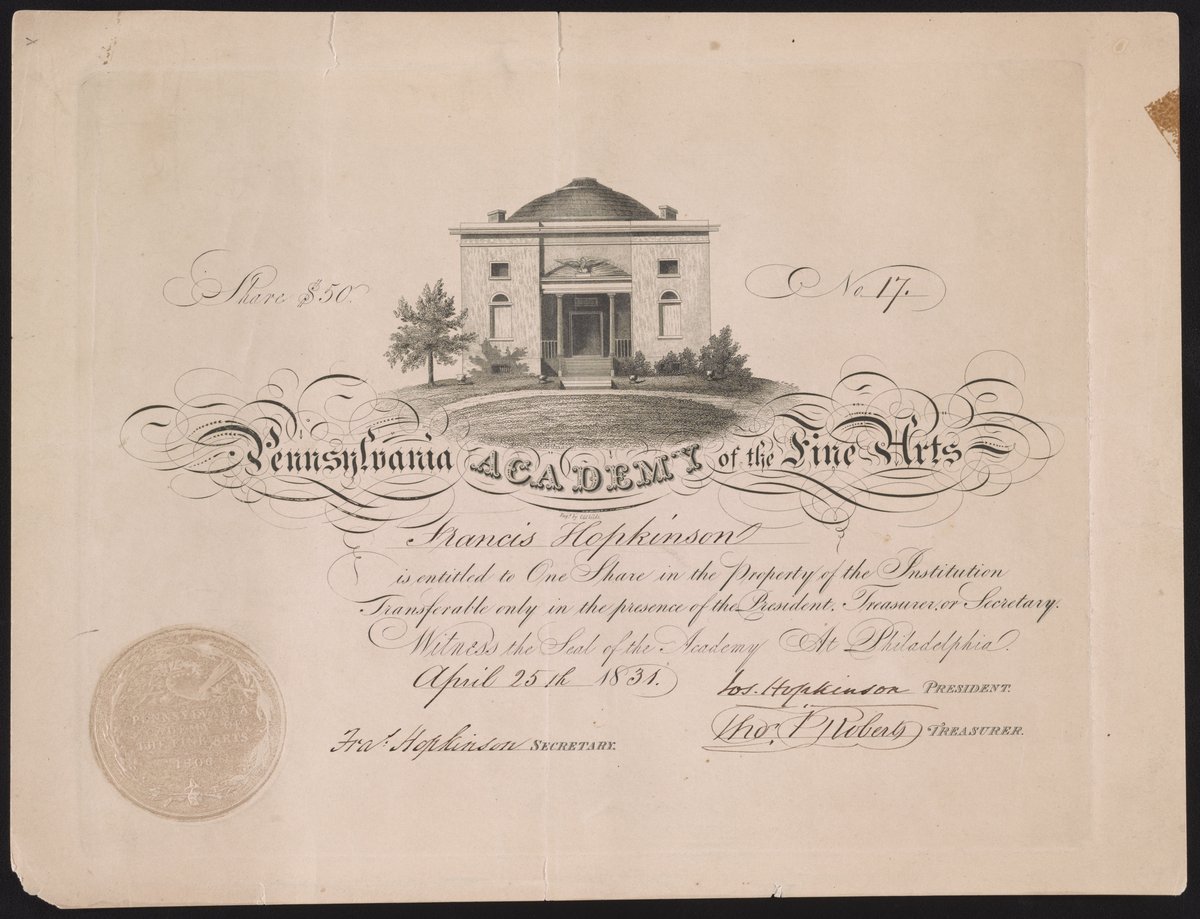 Share $50.
No 17.
Pennsylvania ACADEMY of the Fine Arts
Engd by
Francis Hopkinson
is entitled to One Share in the Property of the Institution
Transferable only in the presence of the President, Treasurer, or Secretary.
Witness the Seal of the Academy At Philadelphia.
April 25th 1831.
Jos. Hopkinson PRESIDENT.
Fras. Hopkinson SECRETARY.
Tho. Roberts TREASURER.
PENNSYLVANIA
1806